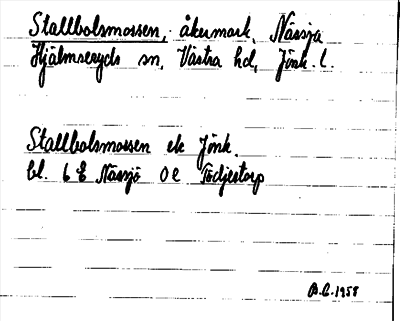 Stallbolsmossen, åkermark, Nässja
Hjälmseryds sn, Västra hd, Jönk. l.
Stallbolsmossen ek Jönk.
bl. 6 E Nässjö 0 e Tödjestorp
B.L. 1958